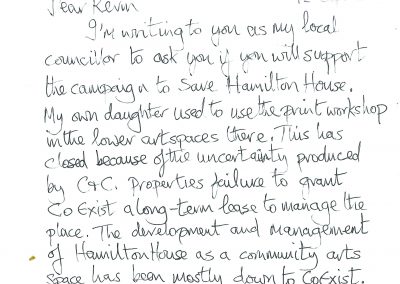 Dear Kevin
I'm writing to you as my local
councillor to ask you if you will support
the campaign to Save Hamilton House.
My own daughter used to use the print workshop
in the lower artspaces there. This has
closed because of the uncertainty produced
by C&C. Properties failure to grant
CoExist a long-term lease to manage the
place. The development and management
of Hamilton House as a community arts
space has been mostly down to CoExist.